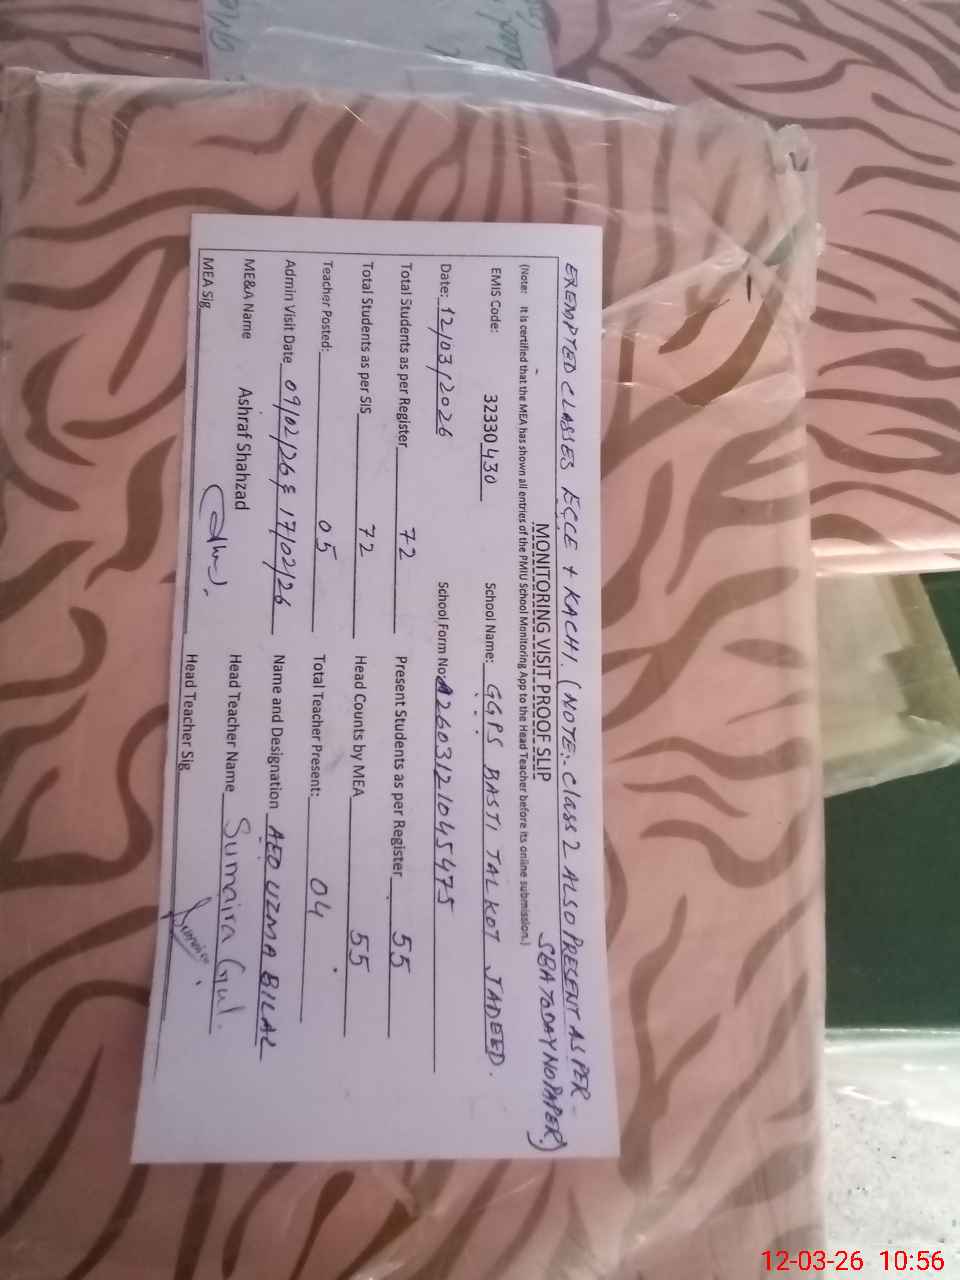 EXEMPTED CLASSES ECCE + KACHI. (NOTE:- Class 2 ALSO PRESENT AS PER -
SBA TODAY NO PAPER)
MONITORING VISIT PROOF SLIP
(Note: It is certified that the MEA has shown all entries of the PMIU School Monitoring App to the Head Teacher before its online submission.)
EMIS Code: 32330430 School Name: GGPS BASTI TALKOT JADEED.
Date: 12/03/2026 School Form No: A2603121045475
Total Students as per Register 72 Present Students as per Register 55
Total Students as per SIS 72 Head Counts by MEA 55
Teacher Posted: 05 Total Teacher Present: 04
Admin Visit Date 09/02/26 & 17/02/26 Name and Designation AEO UZMA BILAL
ME&A Name Ashraf Shahzad Head Teacher Name Sumaira Gul.
MEA Sig Head Teacher Sig
12-03-26 10:56